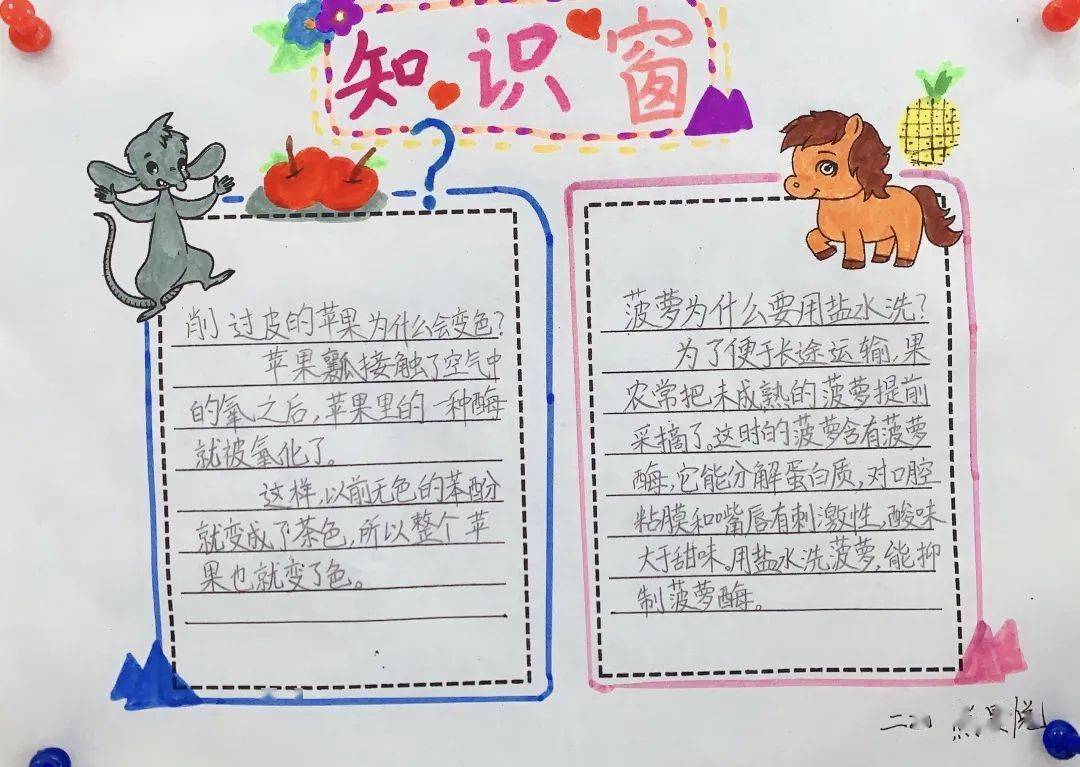 知识窗
?
削过皮的苹果为什么会变色?
苹果瓤接触了空气中
的氧之后,苹果里的一种酶
就被氧化了。
这样,以前无色的苯酚
就变成了茶色,所以整个苹
果也就变了色。
菠萝为什么要用盐水洗?
为了便于长途运输,果
农常把未成熟的菠萝提前
采摘了。这时的菠萝含有菠萝
酶,它能分解蛋白质,对口腔
粘膜和嘴唇有刺激性,酸味
大于甜味。用盐水洗菠萝,能抑
制菠萝酶。
二
悦